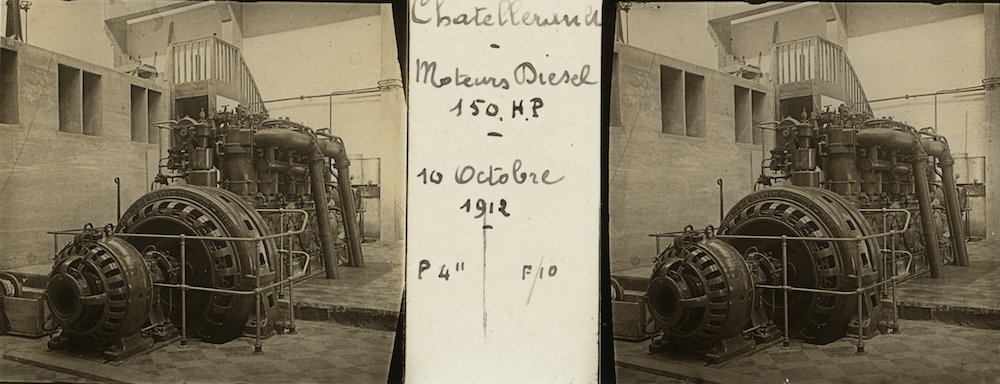 Chatellerault
Moteurs Diesel
150. H.P
10 Octobre
1912
P 4" F/10